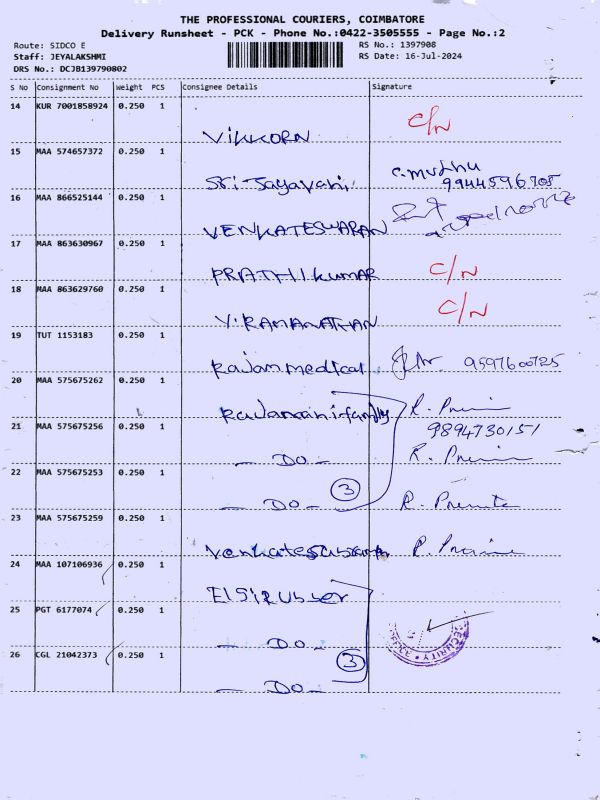 THE PROFESSIONAL COURIERS, COIMBATORE
Delivery Runsheet - PCK - Phone No.:0422-3505555 - Page No.:2
Route: SIDCO E
RS No.: 1397908
Staff: JEYALAKSHMI
RS Date: 16-Jul-2024
DRS No.: DCJB139790802
S No Consignment No Weight PCS Consignee Details Signature
14 KUR 7001858924 0.250 1
VIKKORN C/N
15 MAA 574657372 0.250 1
Sri-Jayavani C. Muthu
9944596705
16 MAA 866525144 0.250 1
VENKATESWARAN
17 MAA 863630967 0.250 1
PRATHIKUMAR C/N
18 MAA 863629760 0.250 1
V.RAMANATHAN C/N
19 TUT 1153183 0.250 1
Rajam medical 9597600725
20 MAA 575675262 0.250 1
Rajamani family
21 MAA 575675256 0.250 1
9894730151
- DO -
22 MAA 575675253 0.250 1
- DO - 3
23 MAA 575675259 0.250 1
24 MAA 107106936 0.250 1
25 PGT 6177074 0.250 1
- DO -
26 CGL 21042373 0.250 1
3
- DO -
SECURITY